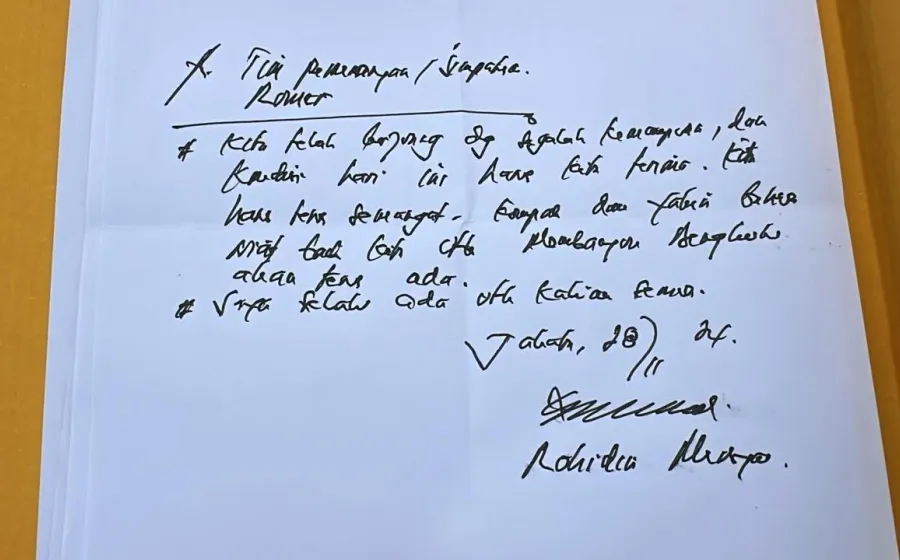 Tim pemenangan / simpatisan.
Romer
# Kita telah berjuang dg segalah kemampuan, dan
kondisi hari ini harus kita terima. Kita
harus terus semangat. kompak dan yakin bahwa
niat baik kita utk Membangun Bengkulu
akan terus ada.
# Saya selalu ada utk kalian semua.
Jakarta, 28/11 24.
Rohidin Mersyah.